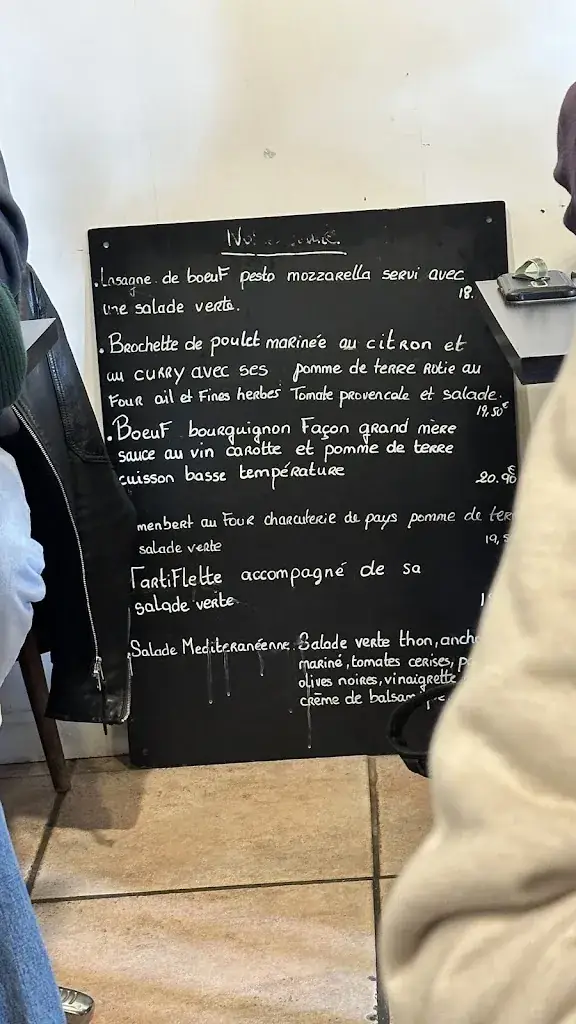 Lasagne de boeuf pesto mozzarella servi avec
une salade verte.
18.
Brochette de poulet marinée au citron et
au curry avec ses pomme de terre rotie au
Four ail et Fines herbes Tomate provencale et salade.
19,50€
Boeuf bourguignon Façon grand mère
sauce au vin carotte et pomme de terre
cuisson basse température
20.90€
menbert au Four charcuterie de pays pomme de
salade verte
19,
Tartiflette accompagné de sa
salade verte
Salade Mediteranéenne. Salade verte thon,
mariné, tomates cerises,
olives noires, vinaigrette
crème de